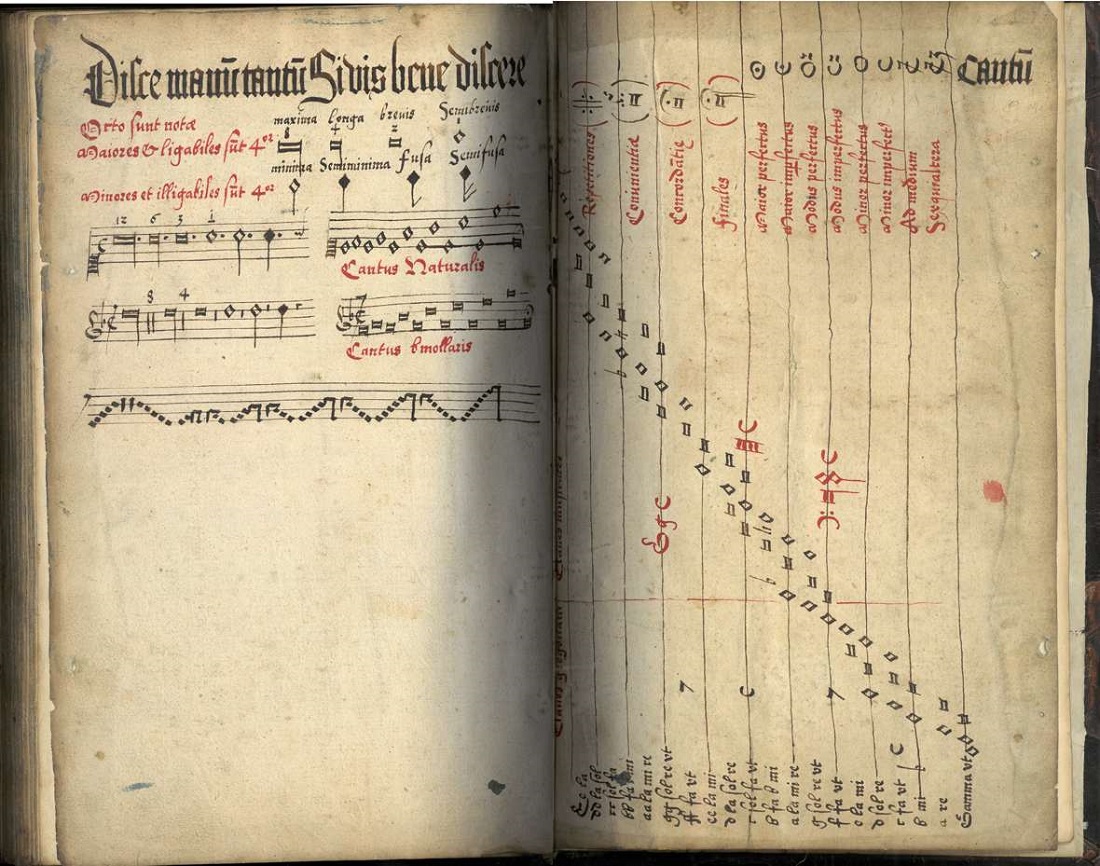 Disce manū tantū Si vis bene discere
Cantū
Octo sunt notæ
maxima longa brevis Semibrevis
Maiores & ligabiles sūt 4or
minima Semiminima fusa Semifusa
Minores et illigabiles sūt 4or
12 6 3 1
Cantus Naturalis
8 4
Cantus bmollaris
Repetitiones
Conuenientiæ
Concordātiæ
finales
Maior perfectus
Maior imperfectus
Modus perfectus
Modus imperfectus
Minor perfectus
Minor imperfect9
Ad medium
Sexquialtera
ee la
dd la sol
cc sol fa
bb fa mi
aa la mi re
gg sol re vt
ff fa vt
ee la mi
d la sol re
c sol fa vt
b fa b mi
a la mi re
g sol re vt
f fa vt
e la mi
d sol re
c fa vt
b mi
a re
Gamma vt